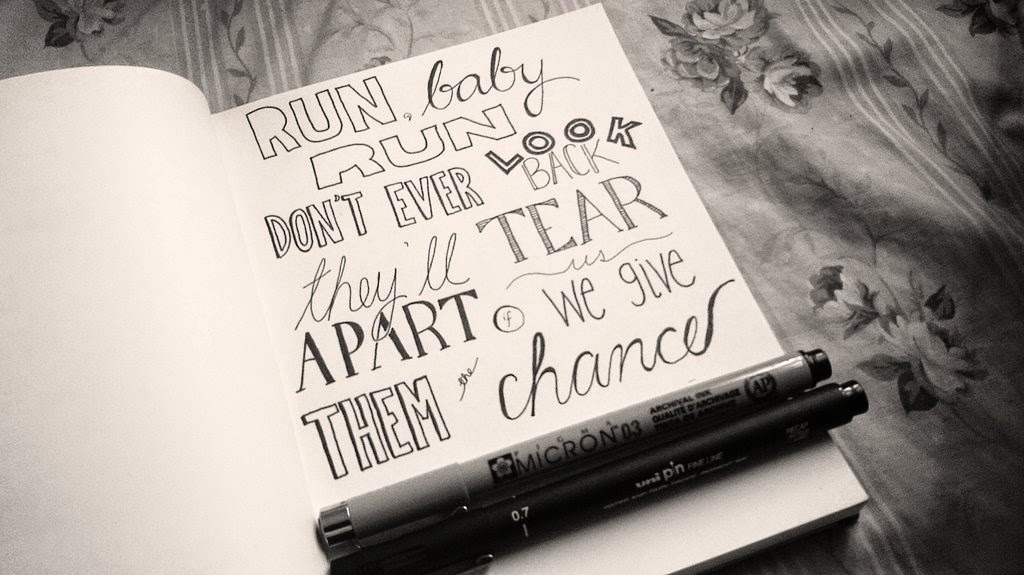 RUN, baby
RUN
DON'T EVER LOOK
BACK
they'll TEAR
us
APART if WE give
THEM the chance
PIGMA
MICRON 03 ARCHIVAL INK
QUALITÉ D'ARCHIVAGE
AP
uni pin FINE LINE
0.7